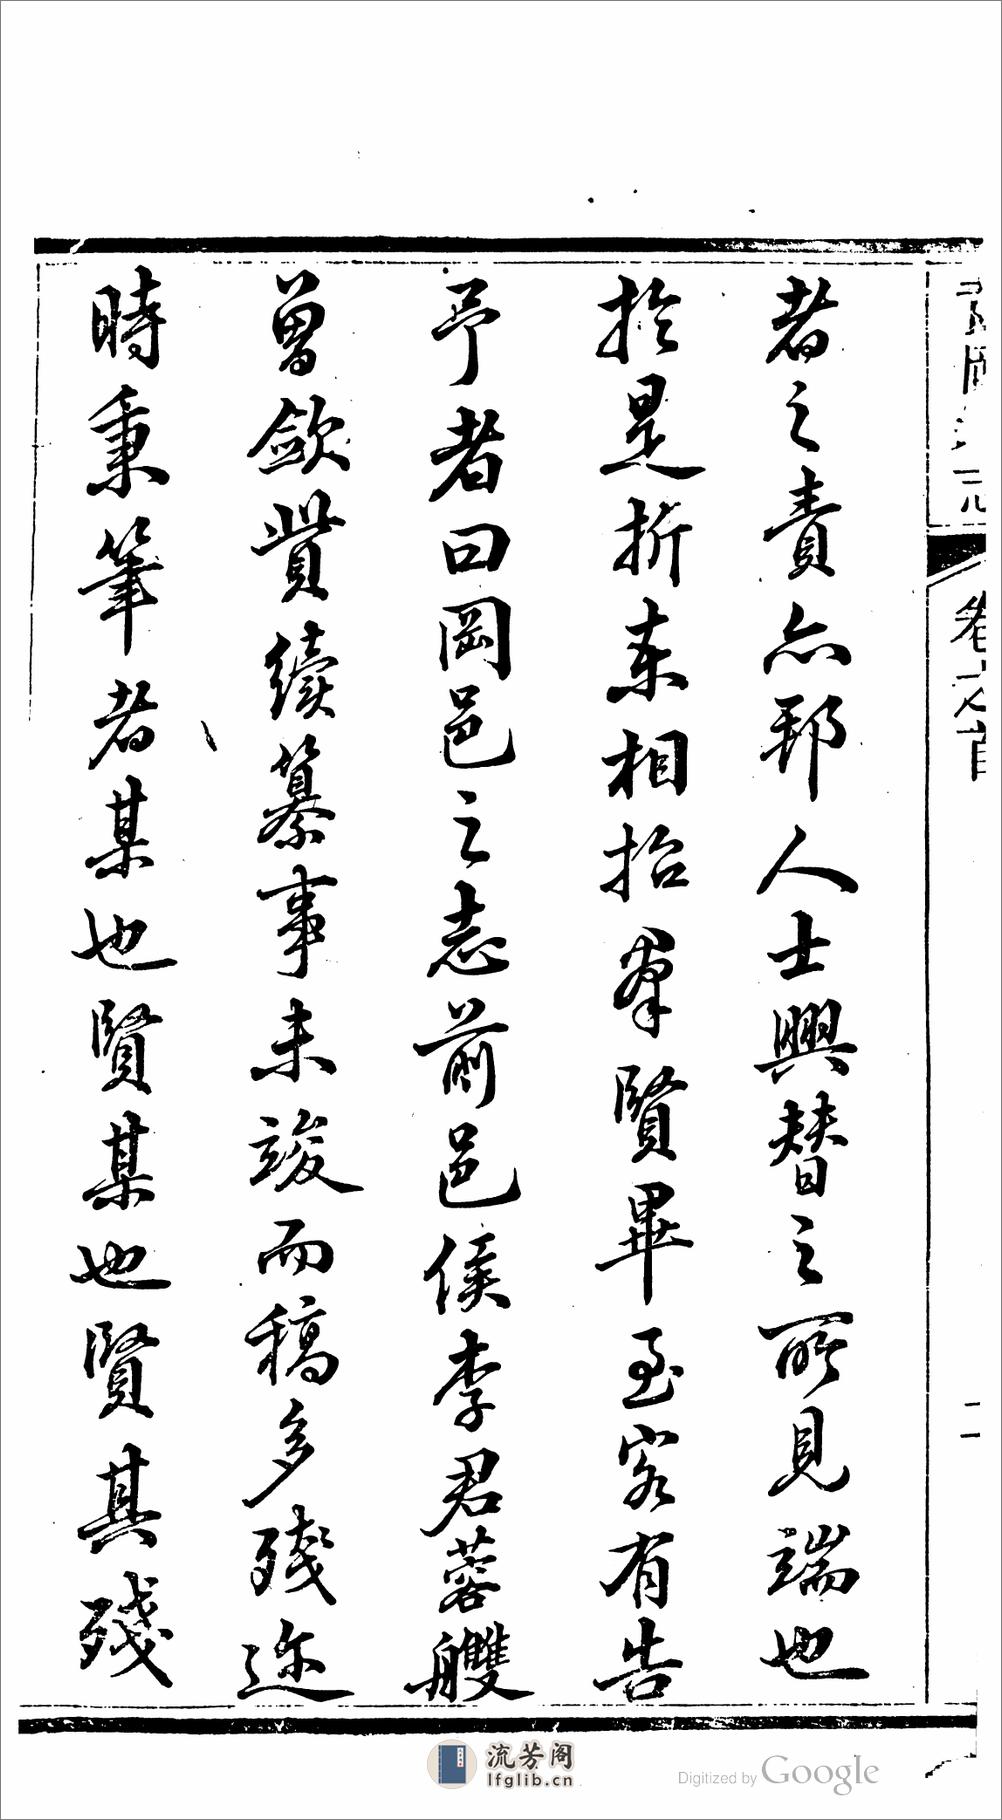 卷之首
二
者之責亦邦人士興替之所見端也
於是折柬相招羣賢畢至客有告
予者曰岡邑之志前邑侯李君蓉艭
曾歛貲續纂事未竣而稿多殘迩
時秉筆者某也賢某也賢其殘
流芳阁
lfglib.cn
Digitized by Google